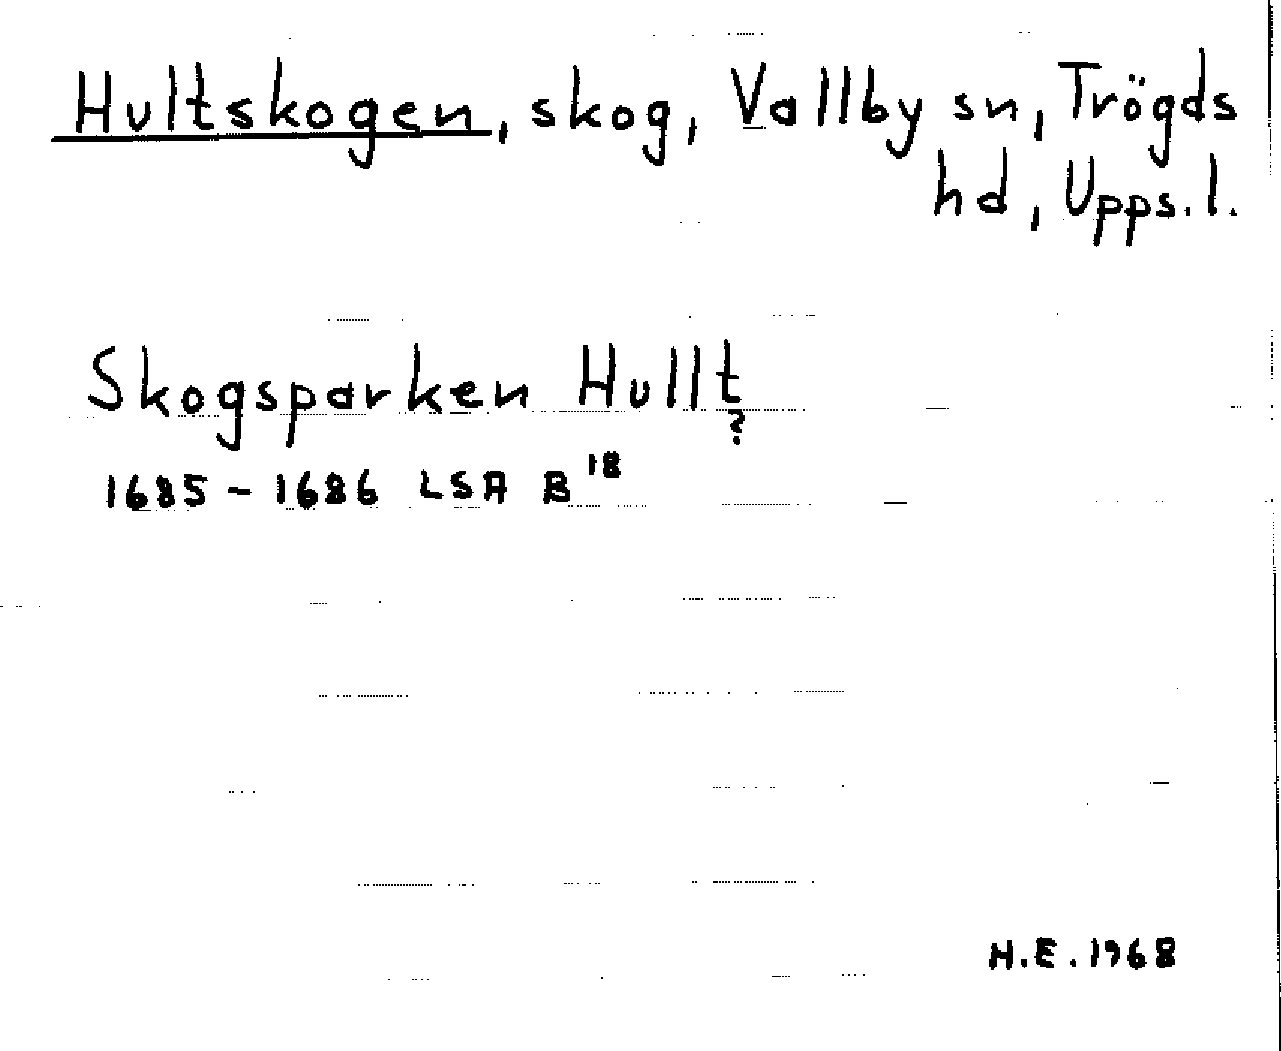 Hultskogen, skog, Vallby sn, Trögds
hd, Upps. l.
Skogsparken Hullt
?
1685-1686 LSA B 18
H.E. 1968